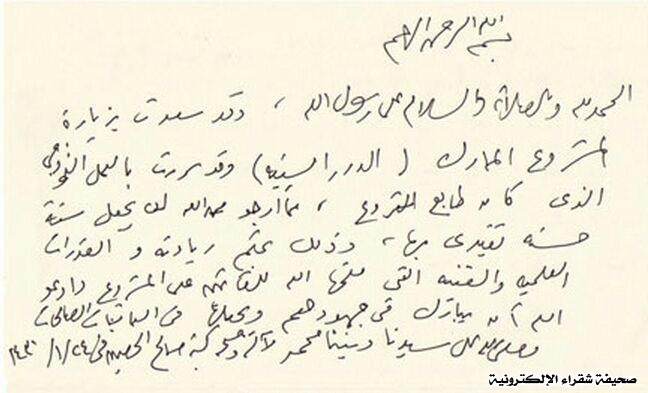 بسم الله الرحمن الرحيم
الحمد لله والصلاة والسلام على رسول الله ، وقد سعدت بزيارة
المشروع المبارك ( الدرر السنية ) وقد سررت بالعمل النموذجي
الذي كان طابع المشروع ، مما أرجو معه الله أن يجعل سنة
حسنة تقتدى بها ، وذلك بحكم ريادته و القدرات
العلمية والتقنية التي منحها الله للقائمين على المشروع وأدعو
الله أن يبارك في جهودهم ويجعلها في الباقيات الصالحات
وصلى الله على سيدنا ونبينا محمد وآله وصحبه كتبه صالح الحصين في ٢٤/ ١/
صحيفة شقراء الإلكترونية